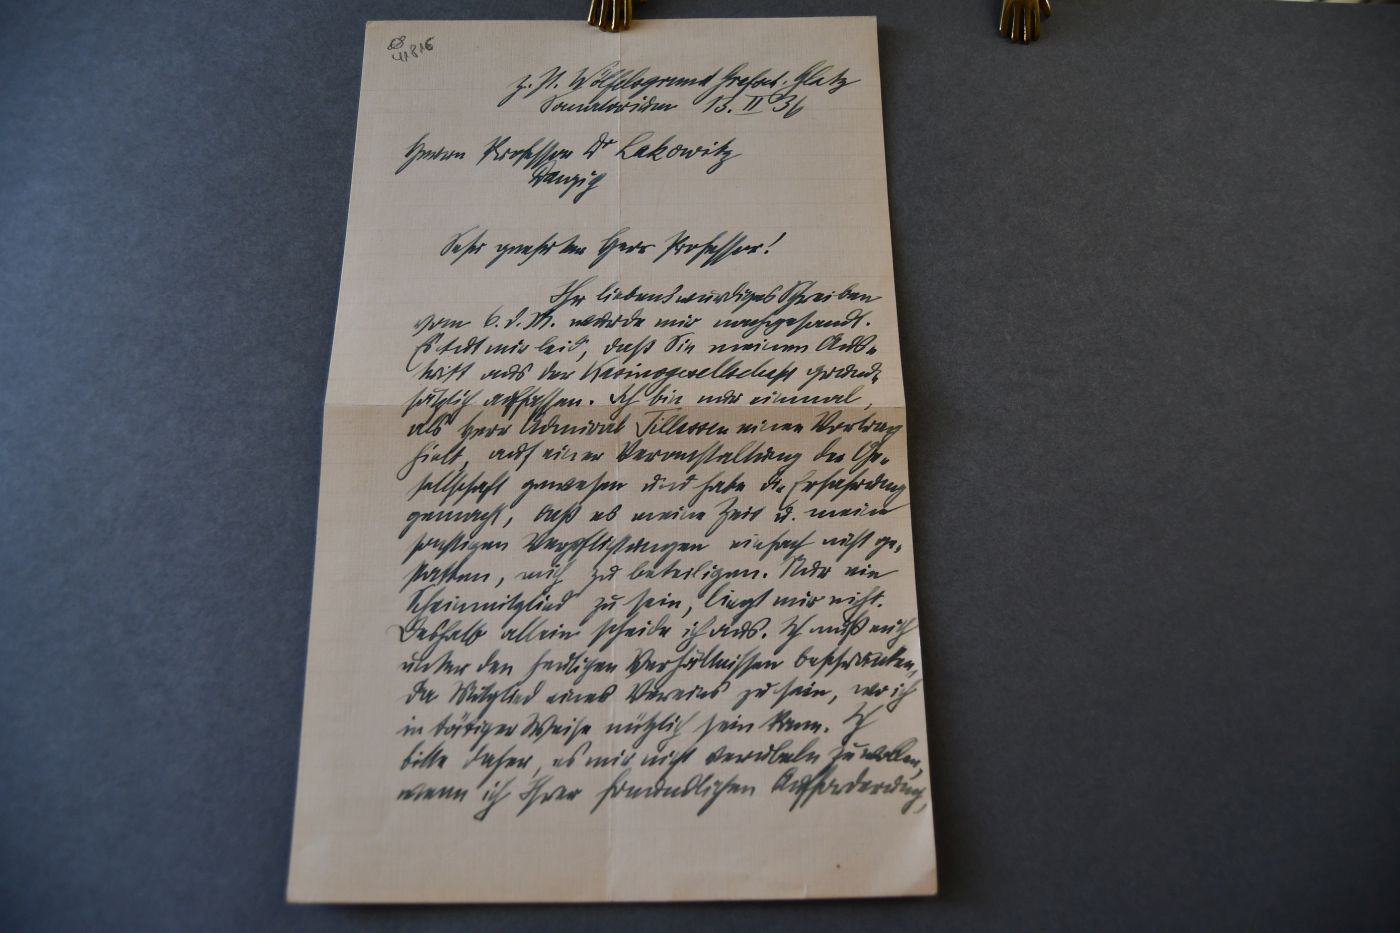 z. Zt. Wölfelsgrund Grafsch. Glatz
Sanatorium 13. II 36
Herrn Professor Dr Lakowitz
Danzig
Sehr geehrter Herr Professor!
Ihr liebenswürdiges Schreiben
vom 6. d. M. wurde mir nachgesandt.
Es tut mir leid, daß Sie meinen Aus-
tritt aus der Kasinogesellschaft grund-
sätzlich auffassen. Ich bin nur einmal,
als Herr Admiral Tillessen einen Vortrag
hielt, auf einer Veranstaltung der Ge-
sellschaft gewesen und habe die Erfahrung
gemacht, daß es meine Zeit u. meine
sonstigen Verpflichtungen einfach nicht ge-
statten, mich zu beteiligen. Nur ein
Scheinmitglied zu sein, liegt mir nicht.
Deshalb allein scheide ich aus. Ich muß mich
unter den heutigen Verhältnissen beschränken,
da Mitglied eines Vereins zu sein, wo ich
in tätiger Weise nützlich sein kann. Ich
bitte daher, es mir nicht verübeln zu wollen,
wenn ich Ihrer freundlichen Aufforderung,